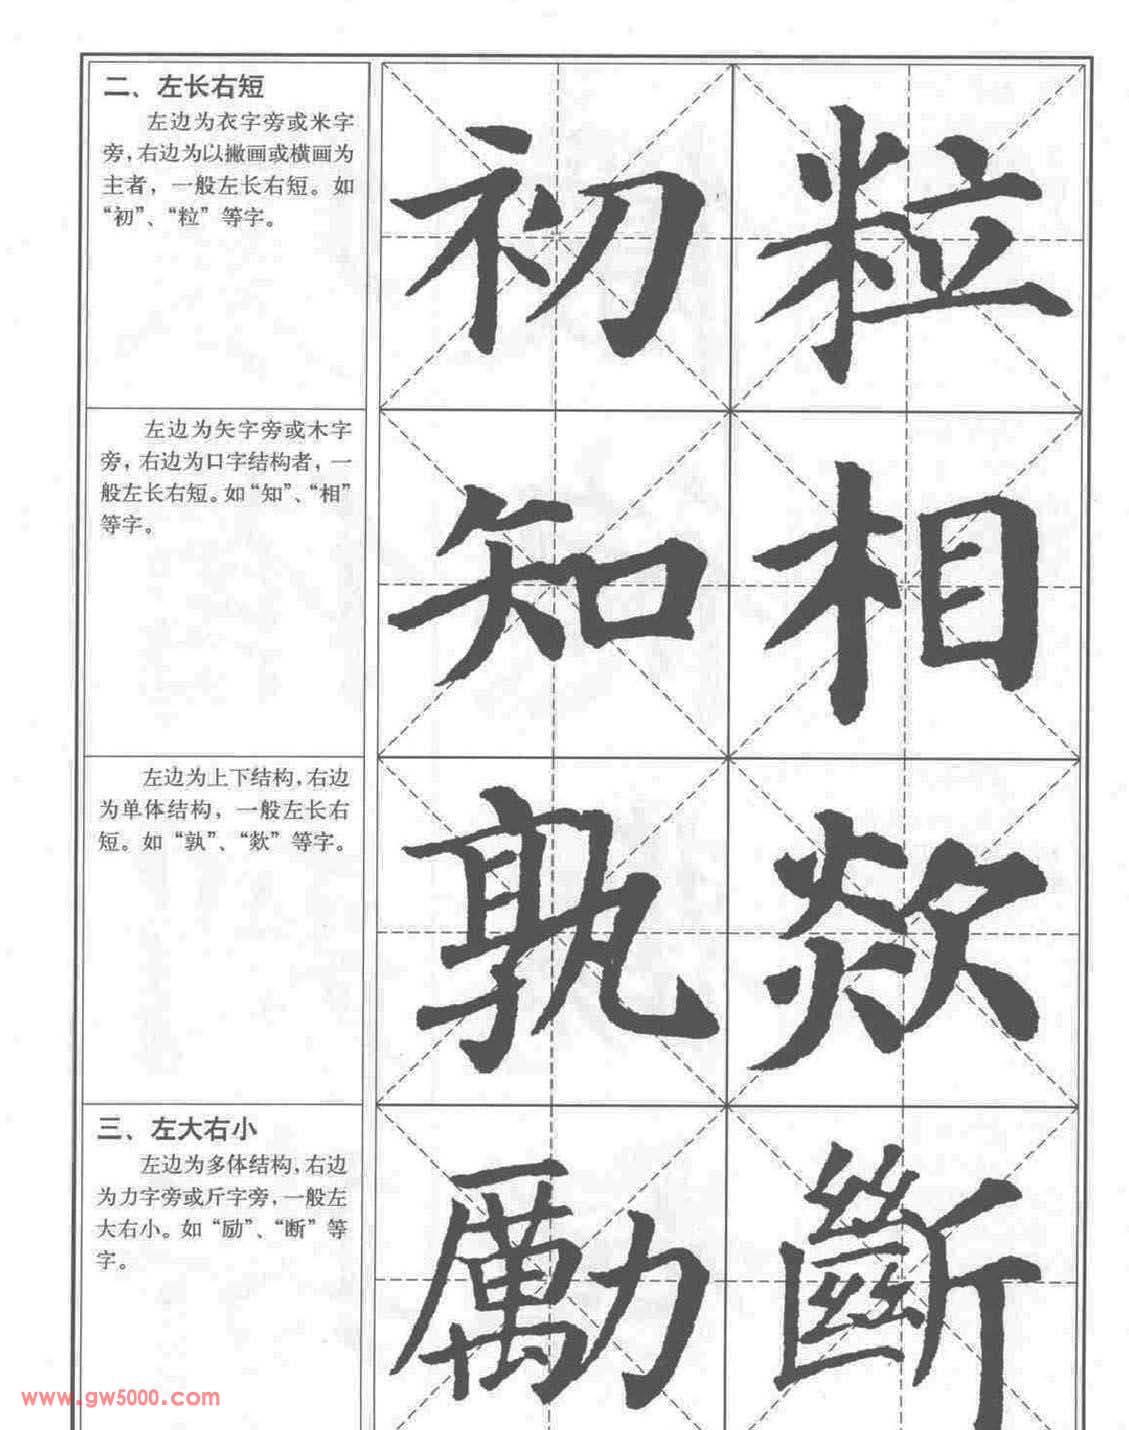 二、左长右短
左边为衣字旁或米字
旁，右边为以撇画或横画为
主者，一般左长右短。如
“初”、“粒”等字。
初 粒
左边为矢字旁或木字
旁，右边为口字结构者，一
般左长右短。如“知”、“相”
等字。
知 相
左边为上下结构，右边
为单体结构，一般左长右
短。如“孰”、“欻”等字。
孰 欻
三、左大右小
左边为多体结构，右边
为力字旁或斤字旁，一般左
大右小。如“励”、“断”等
字。
勵 斷
www.gw5000.com